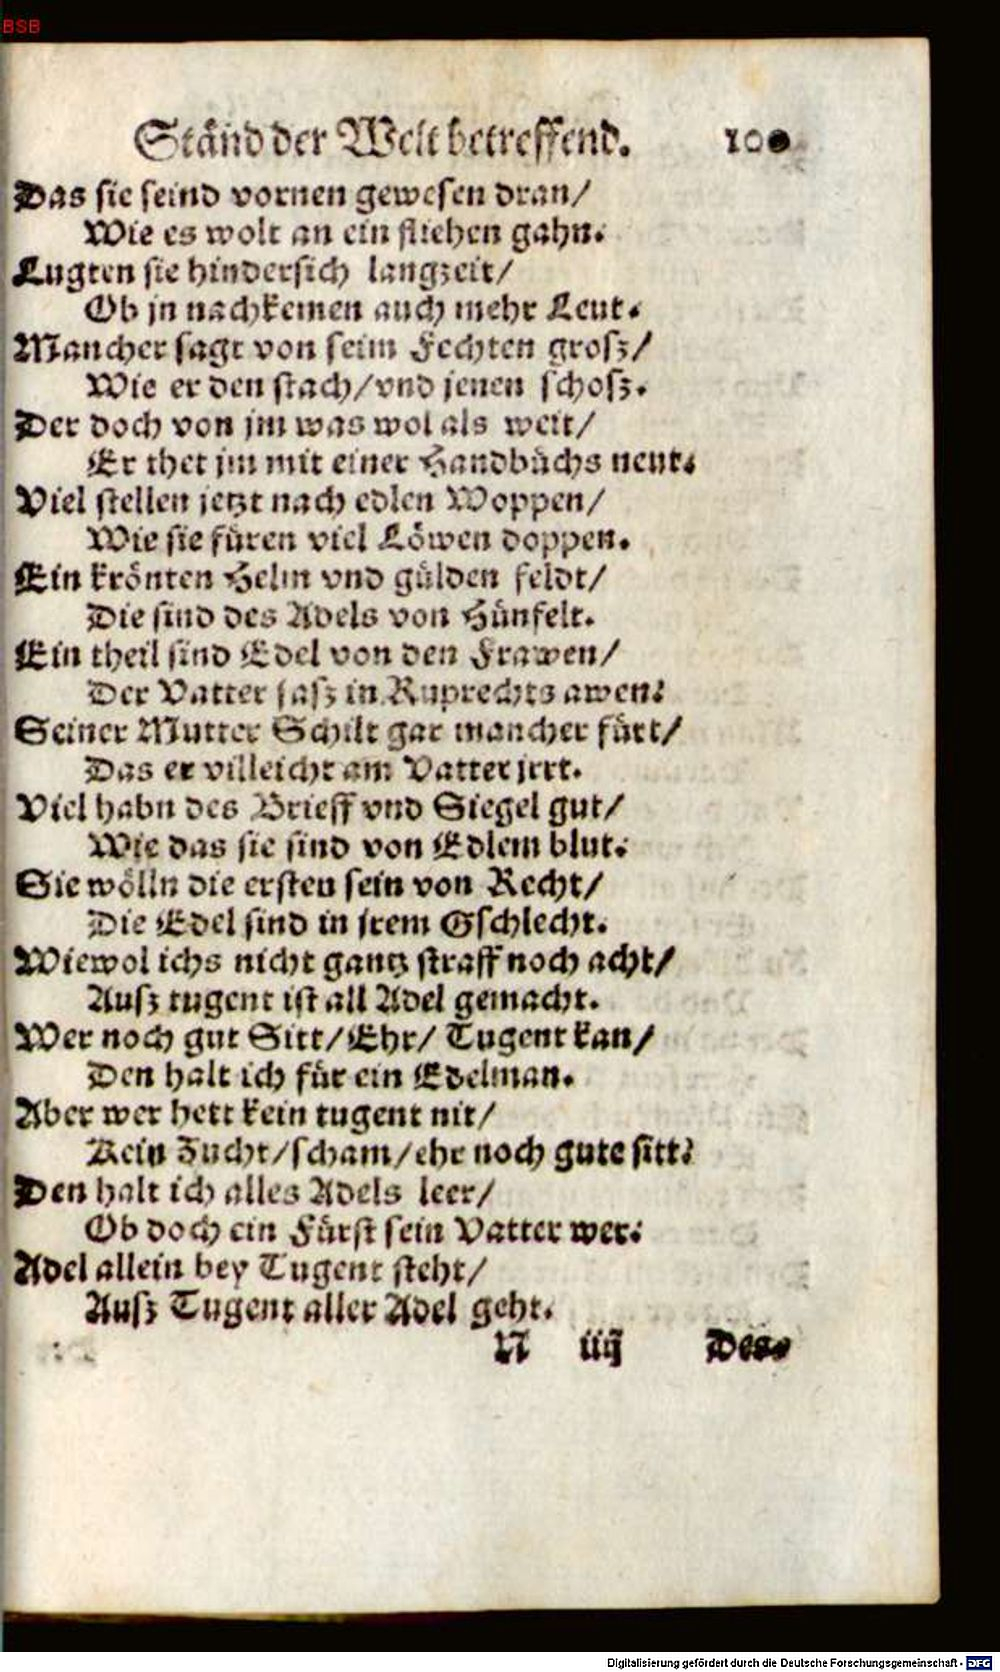 BSB
Ständ der Welt betreffend. 100
Das sie seind vornen gewesen dran/
Wie es wolt an ein fliehen gahn.
Lugten sie hindersich langzeit/
Ob jn nachkemen auch mehr Leut.
Mancher sagt von seim Fechten grosz/
Wie er den stach/vnd jenen schosz.
Der doch von jm was wol als weit/
Er thet jm mit einer Handbüchs neut.
Viel stellen jetzt nach edlen Woppen/
Wie sie füren viel Löwen doppen.
Ein krönten Helm vnd gülden feldt/
Die sind des Adels von Hünfelt.
Ein theil sind Edel von den Frawen/
Der Vatter sasz in Ruprechts awen:
Seiner Mutter Schilt gar mancher fürt/
Das er villeicht am Vatter jrrt.
Viel habn des Brieff vnd Siegel gut/
Wie das sie sind von Edlem blut:
Sie wölln die ersten sein von Recht/
Die Edel sind in jrem Gschlecht.
Wiewol ichs nicht gantz straff noch acht/
Ausz tugent ist all Adel gemacht.
Wer noch gut Sitt/Ehr/ Tugent kan/
Den halt ich für ein Edelman.
Aber wer hett kein tugent nit/
Kein Zucht/scham/ehr noch gute sitt:
Den halt ich alles Adels leer/
Ob doch ein Fürst sein Vatter wer:
Adel allein bey Tugent steht/
Ausz Tugent aller Adel geht.
N iiij Des-
Digitalisierung gefördert durch die Deutsche Forschungsgemeinschaft - DFG